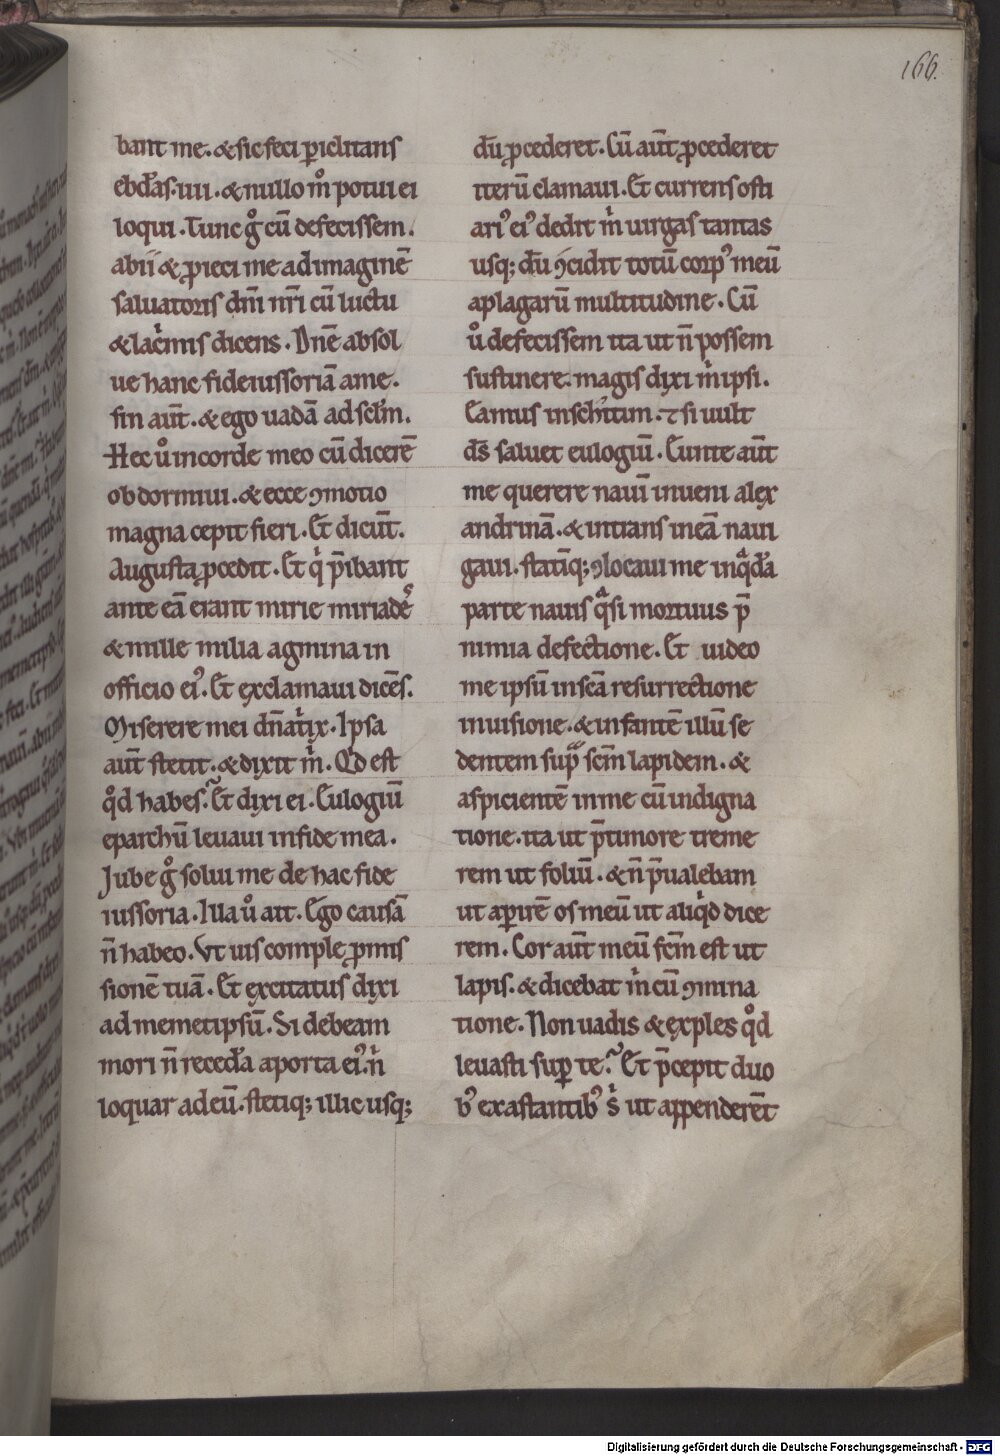 166.
bant me. &sic feci piclitans
ebd̄as. iiii. &nullo m̊ potui ei
loqui. Tunc g̊ cū defecissem.
abii & ꝓieci me ad imaginē
saluatoris dn̄i nr̄i cū luctu
&lacͥmis dicens. Dn̄e absol
ue hanc fideiussoriā ame.
sin aut̄. &ego uadā ad scl̄m.
Hec ů incorde meo cū dicerē
obdormiui. &ecce ꝯmotio
magna cepit fieri. Et dicūt.
Augusta ꝓcedit. Et qͥ p̄ibant
ante eā erant mirie miriades
&mille milia agmina in
officio eiꝰ. Et exclamaui dicēs.
Miserere mei dn̄atͥx. Ipsa
aut̄ stetit. &dixit m̍. Qd̄ est
qͦd habes? Et dixi ei. Eulogiū
eparchū leuaui infide mea.
Jube g̊ solui me de hac fide
iussoria. Illa ů ait. Ego causā
n̄ habeo. Vt uis comple ꝓmis
sionē tuā. Et excitatus dixi
ad memetipsū. Si debeam
mori n̄ recedā aporta eiꝰ. nͥ
loquar ad eū. stetiq; illic usq;
dū ꝓcederet. Cū aut̄ ꝓcederet
iterū clamaui. Et currens osti
ariꝰ eiꝰ dedit m̍ uirgas tantas
usq; dū ꝯcidit totū corpꝰ meū
aplagarū multitudine. Cū
ů defecissem ita ut n̄ possem
sustinere. magis dixi m̍ipsi.
Eamus inschitim. ⁊ si uult
ds̄ saluet eulogiū. Eunte aut̄
me querere nauī inueni alex
andrinā. &intrans ineā naui
gaui. statīq; ꝯlocaui me inqͣdā
parte nauis qͣsi mortuus p̄
nimia defectione. Et uideo
me ipsū inscā resurrectione
inuisione. &infantē illū se
dentem supͣ scm̄ lapidem. &
aspicientē inme cū indigna
tione. ita ut p̄timore treme
rem ut foliū. &n̄ p̄ualebam
ut aꝑirē os meū ut aliqͥd dice
rem. Cor aut̄ meū fcm̄ est ut
lapis. &dicebat m̍ cū ꝯmina
tione. Non uadis &exples qͦd
leuasti suꝑ te? Et p̄cepit duo
bꝰ exastantibꝰ sͥ ut appenderēt
Digitalisierung gefördert durch die Deutsche Forschungsgemeinschaft - DFG